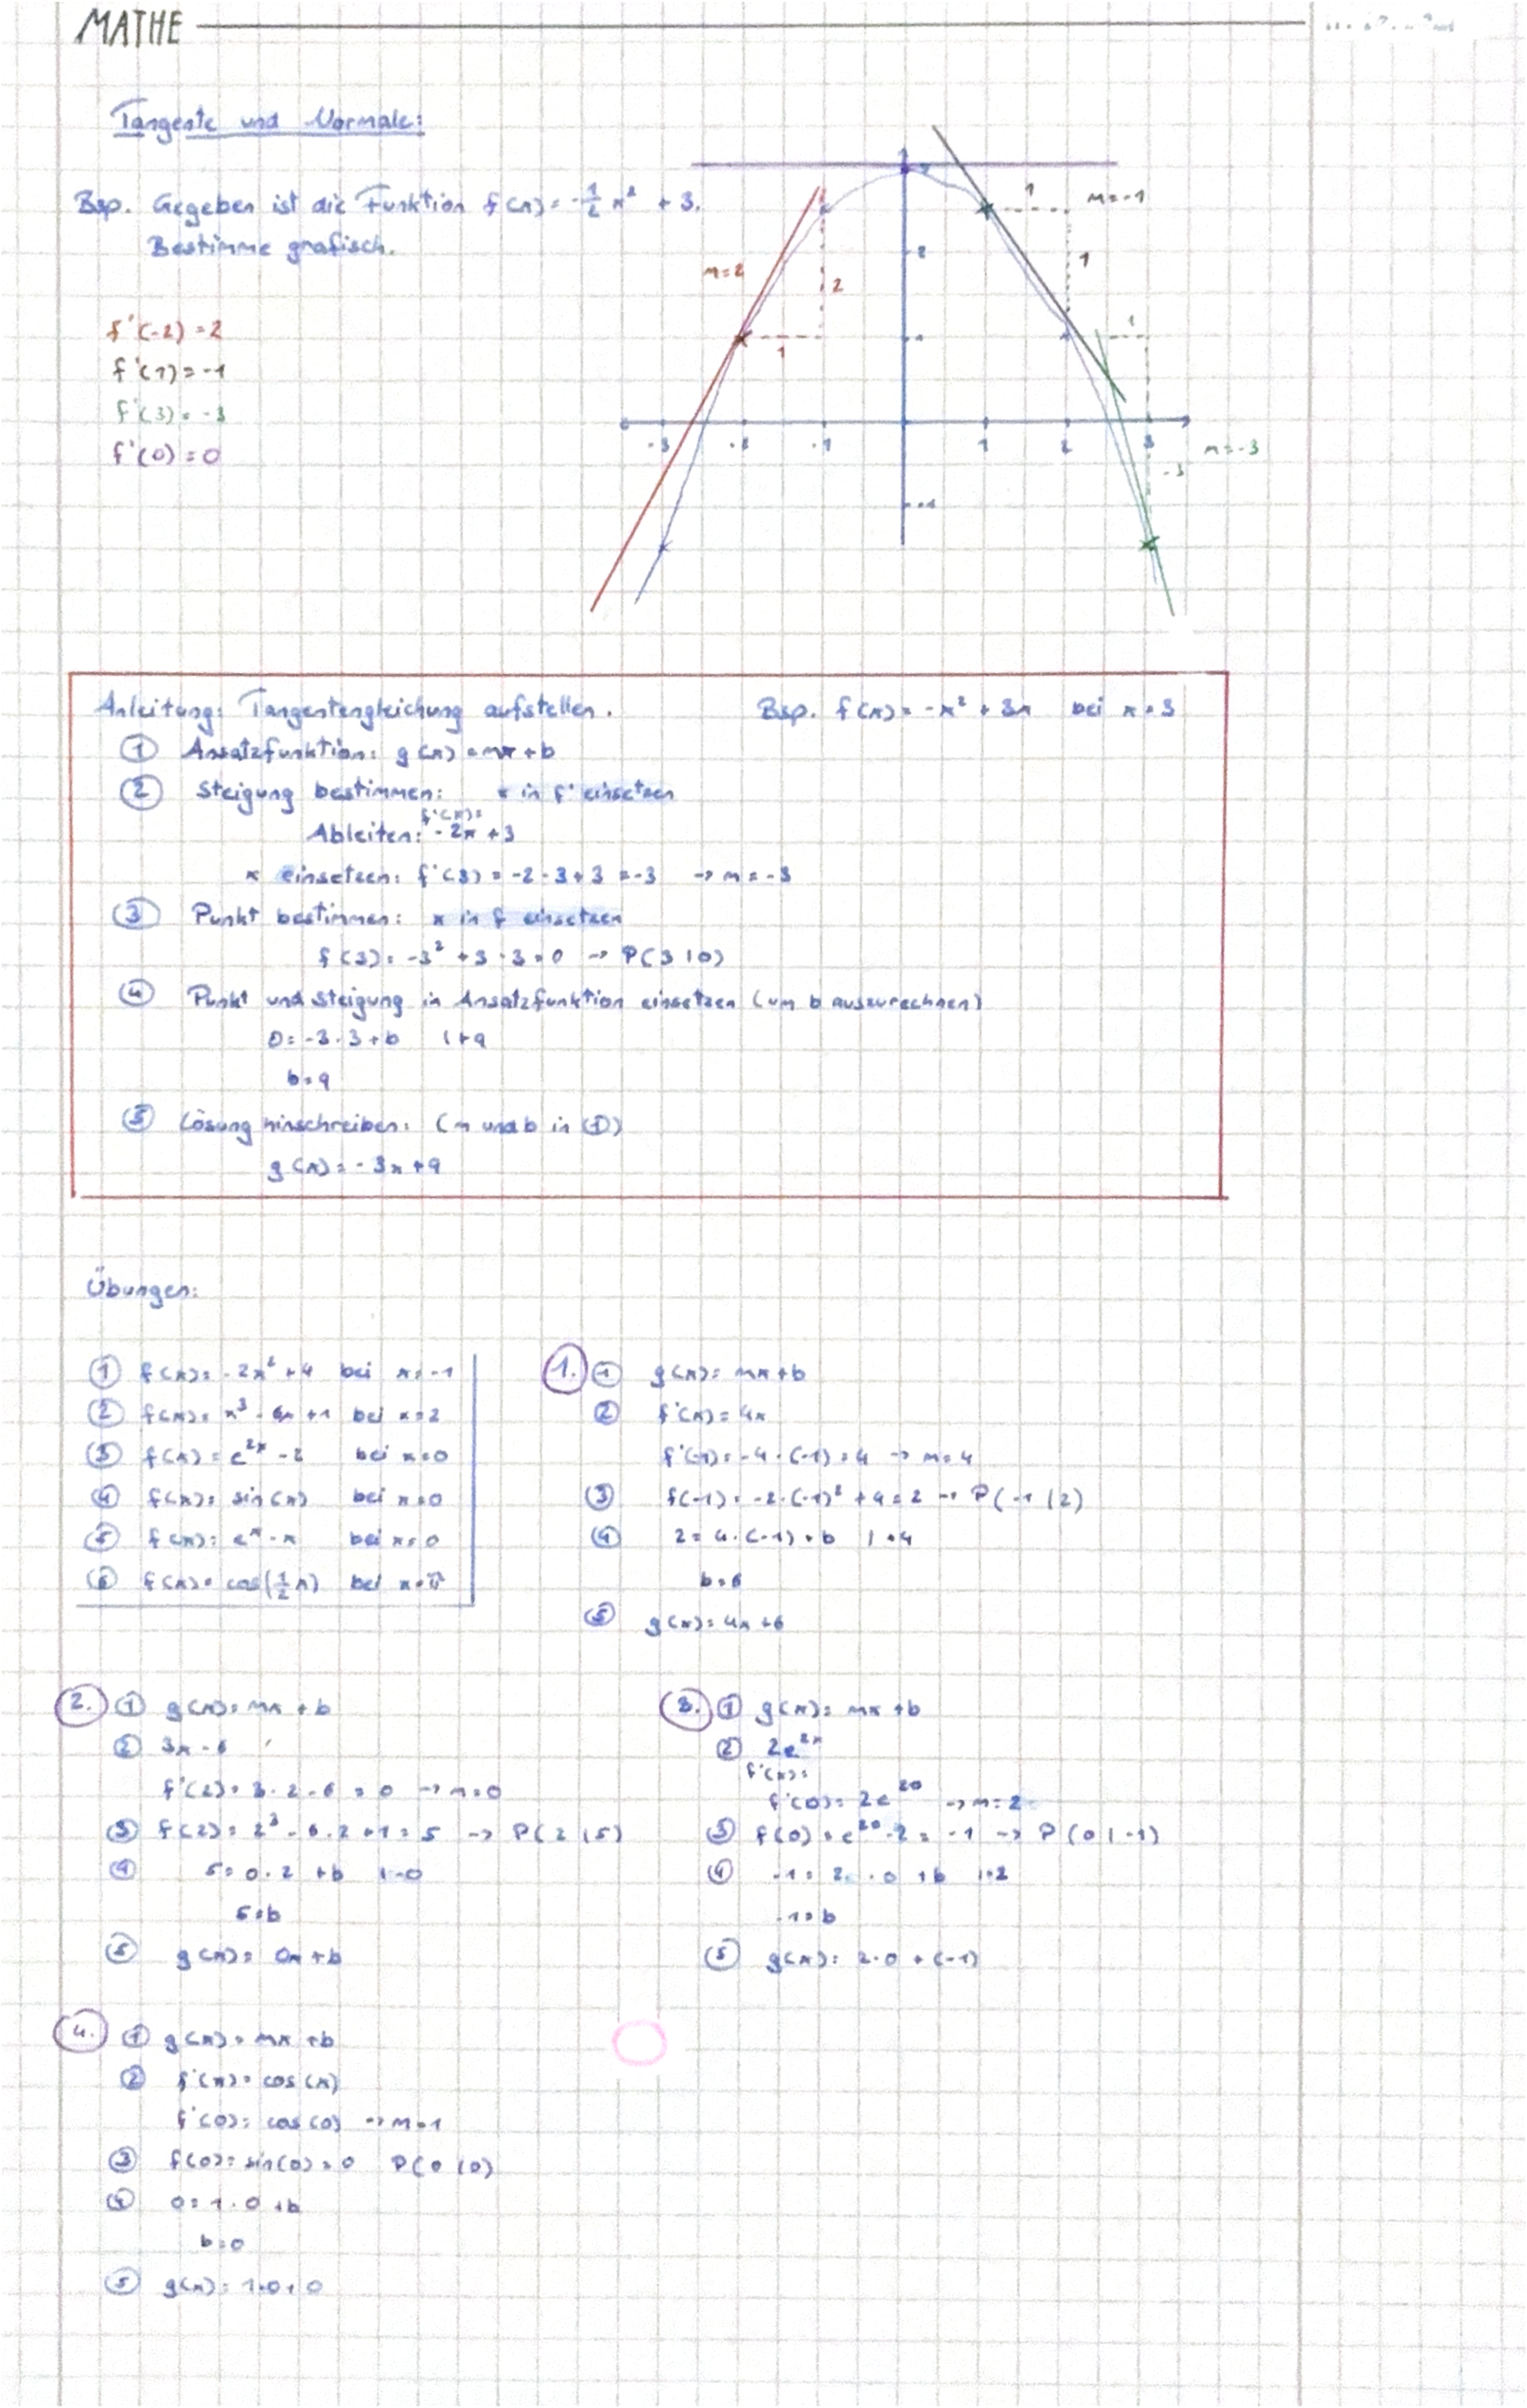 MATHE
Tangente und Normale:
Bsp. Gegeben ist die Funktion f(x) = -1/2 x² + 3.
Bestimme grafisch.
f'(-2) = 2
f'(1) = -1
f'(3) = -3
f'(0) = 0
m=2
2
1
1
m=-1
1
1
m=-3
-3
-3 -2 -1 1 2 3
3
2
1
-1
Anleitung: Tangentengleichung aufstellen. Bsp. f(x) = -x² + 3x bei x = 3
① Ansatzfunktion: g(x) = mx + b
② Steigung bestimmen: x in f' einsetzen
f'(x)=
Ableiten: -2x + 3
x einsetzen: f'(3) = -2·3+3 = -3 → m = -3
③ Punkt bestimmen: x in f einsetzen
f(3) = -3² + 3·3 = 0 → P(3|0)
④ Punkt und Steigung in Ansatzfunktion einsetzen (um b auszurechnen)
0 = -3·3+b |+9
b = 9
⑤ Lösung hinschreiben: (m und b in ①)
g(x) = -3x + 9
Übungen:
① f(x) = -2x² + 4 bei x = -1
② f(x) = x³ - 6x + 1 bei x = 2
③ f(x) = e^2x - 2 bei x = 0
④ f(x) = sin(x) bei x = 0
⑤ f(x) = e^x - x bei x = 0
⑥ f(x) = cos(1/2 x) bei x = π
1. ① g(x) = mx + b
② f'(x) = 4x
f'(-1) = -4·(-1) = 4 → m = 4
③ f(-1) = -2·(-1)² + 4 = 2 → P(-1|2)
④ 2 = 4·(-1) + b |+4
b = 6
⑤ g(x) = 4x + 6
2. ① g(x) = mx + b
② 3x - 6
f'(2) = 3·2 - 6 = 0 → m = 0
③ f(2) = 2³ - 6·2 + 1 = 5 → P(2|5)
④ 5 = 0·2 + b |-0
5 = b
⑤ g(x) = 0x + b
3. ① g(x) = mx + b
② 2e^2x
f'(x) =
f'(0) = 2e^20 → m = 2
③ f(0) = e^20 - 2 = -1 → P(0|-1)
④ -1 = 2·0 + b |:2
-1 = b
⑤ g(x) = 2·0 + (-1)
4. ① g(x) = mx + b
② f'(x) = cos(x)
f'(0) = cos(0) → m = 1
③ f(0) = sin(0) = 0 P(0|0)
④ 0 = 1·0 + b
b = 0
⑤ g(x) = 1·0 + 0